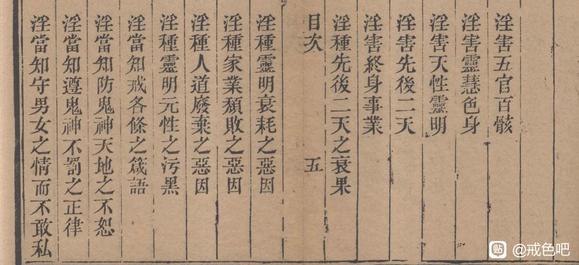 淫害五官百骸
淫害靈慧色身
淫害天性靈明
淫害先後二天
淫害終身事業
淫種先後二天之衰果
目次
五
淫種靈明衰耗之惡因
淫種家業頹敗之惡因
淫種人道廢棄之惡因
淫種靈明元性之污黑
淫當知戒各條之箴語
淫當知防鬼神天地之不恕
淫當知遵鬼神不罰之正律
淫當知守男女之情而不敢私
貼 @戒色吧